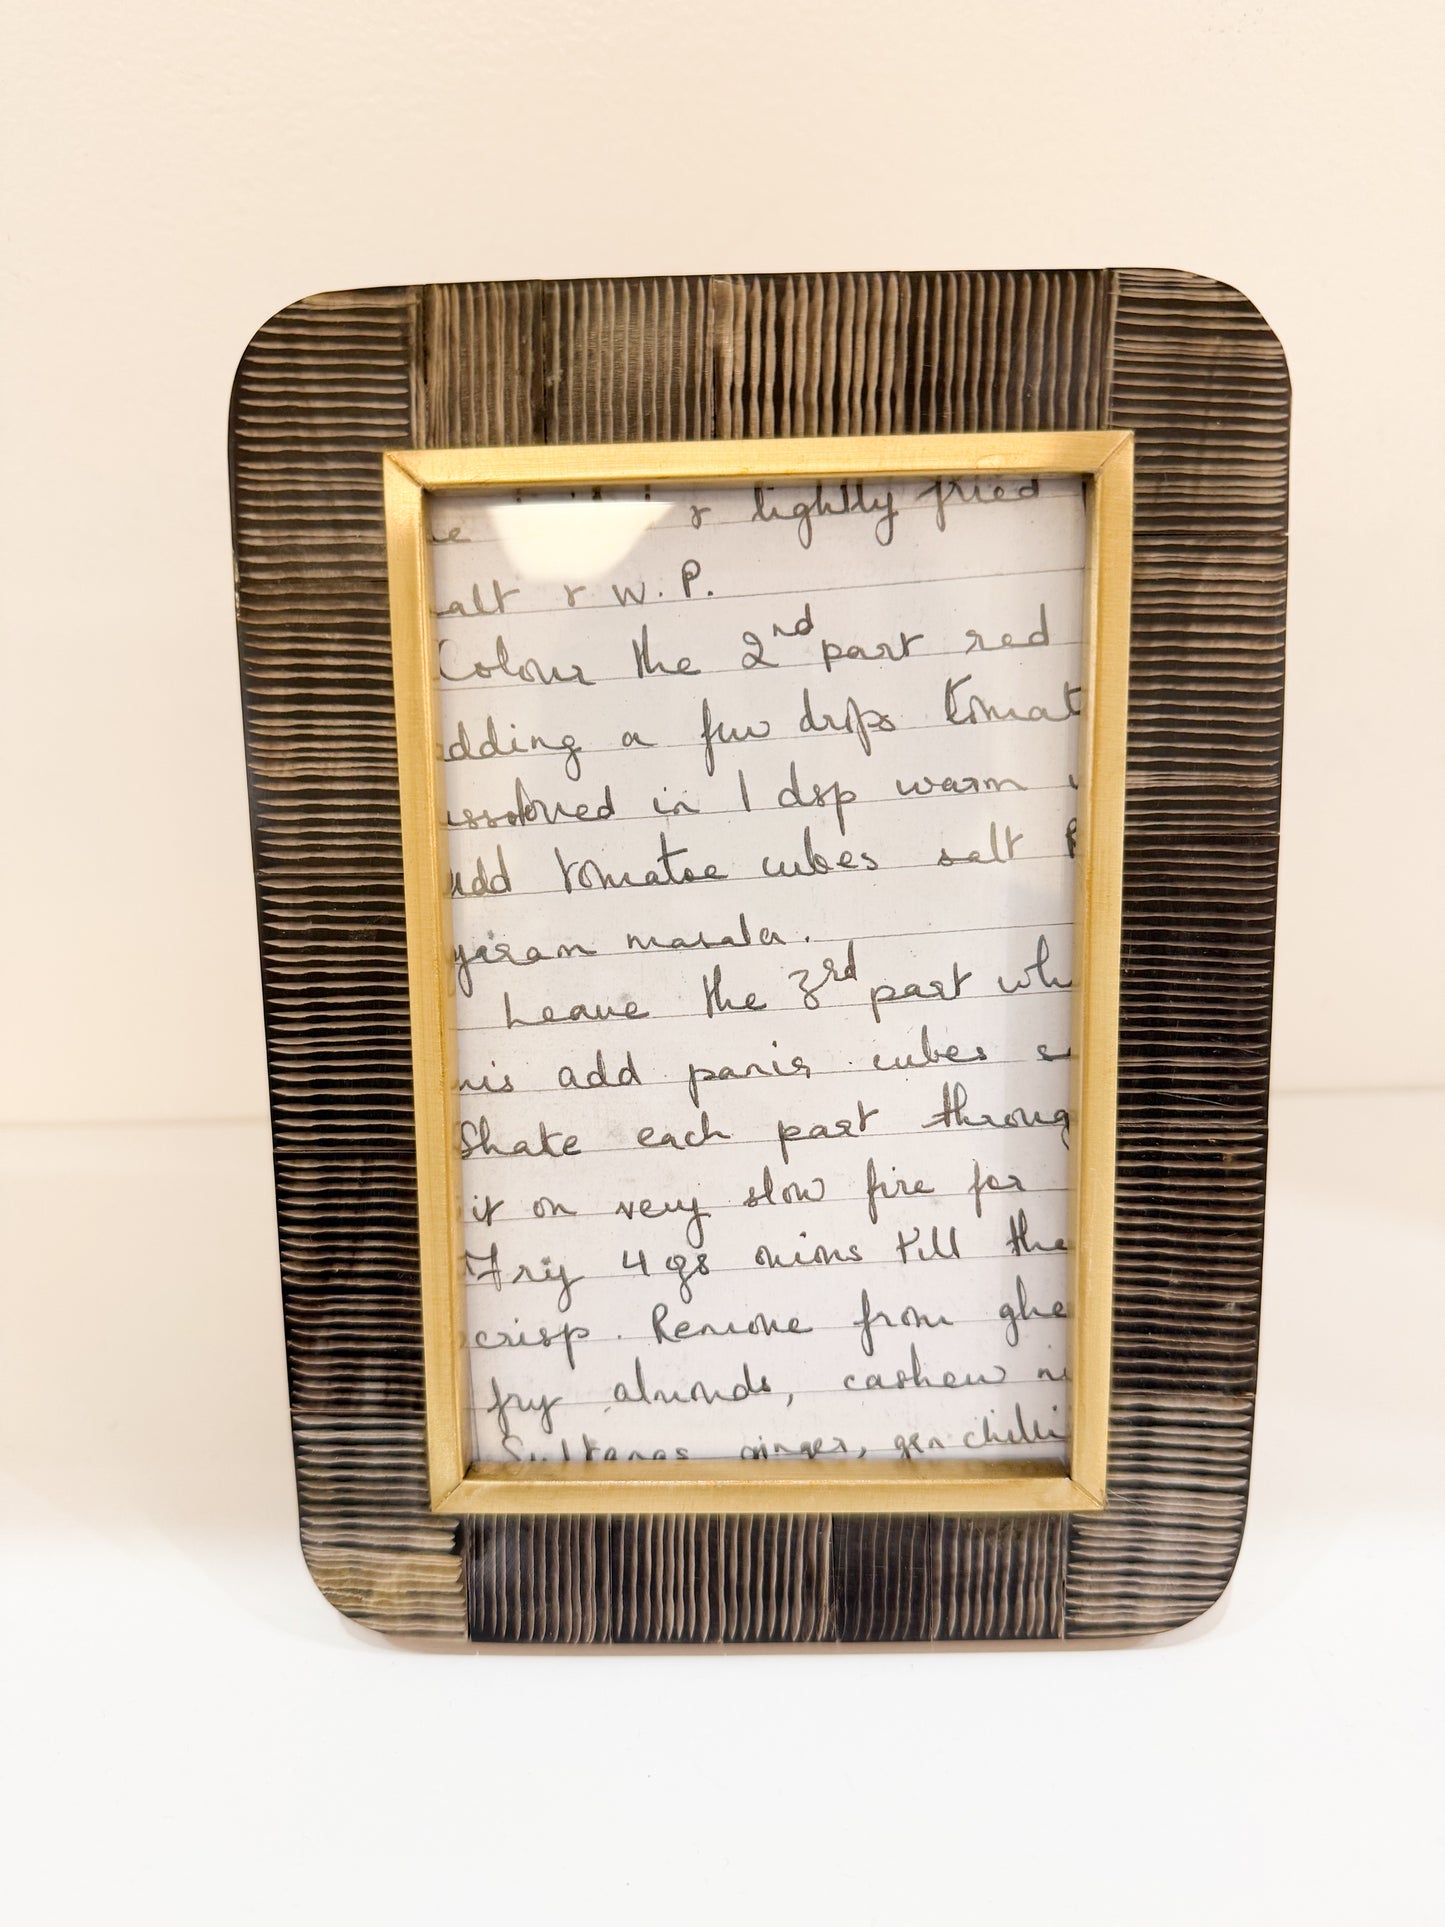 & lightly fried
alt & W.P.
Colour the 2nd part red
dding a few drops tomat
ssolved in 1 dsp warm
add tomatoe cubes salt
garam masala.
Leave the 3rd part wh
his add panir cubes s
Shake each part throug
it on very slow fire for
Fry 4 gs onions till the
crisp. Remove from ghe
fry almonds, cashew n
Sultanas, ginger, gen chilli